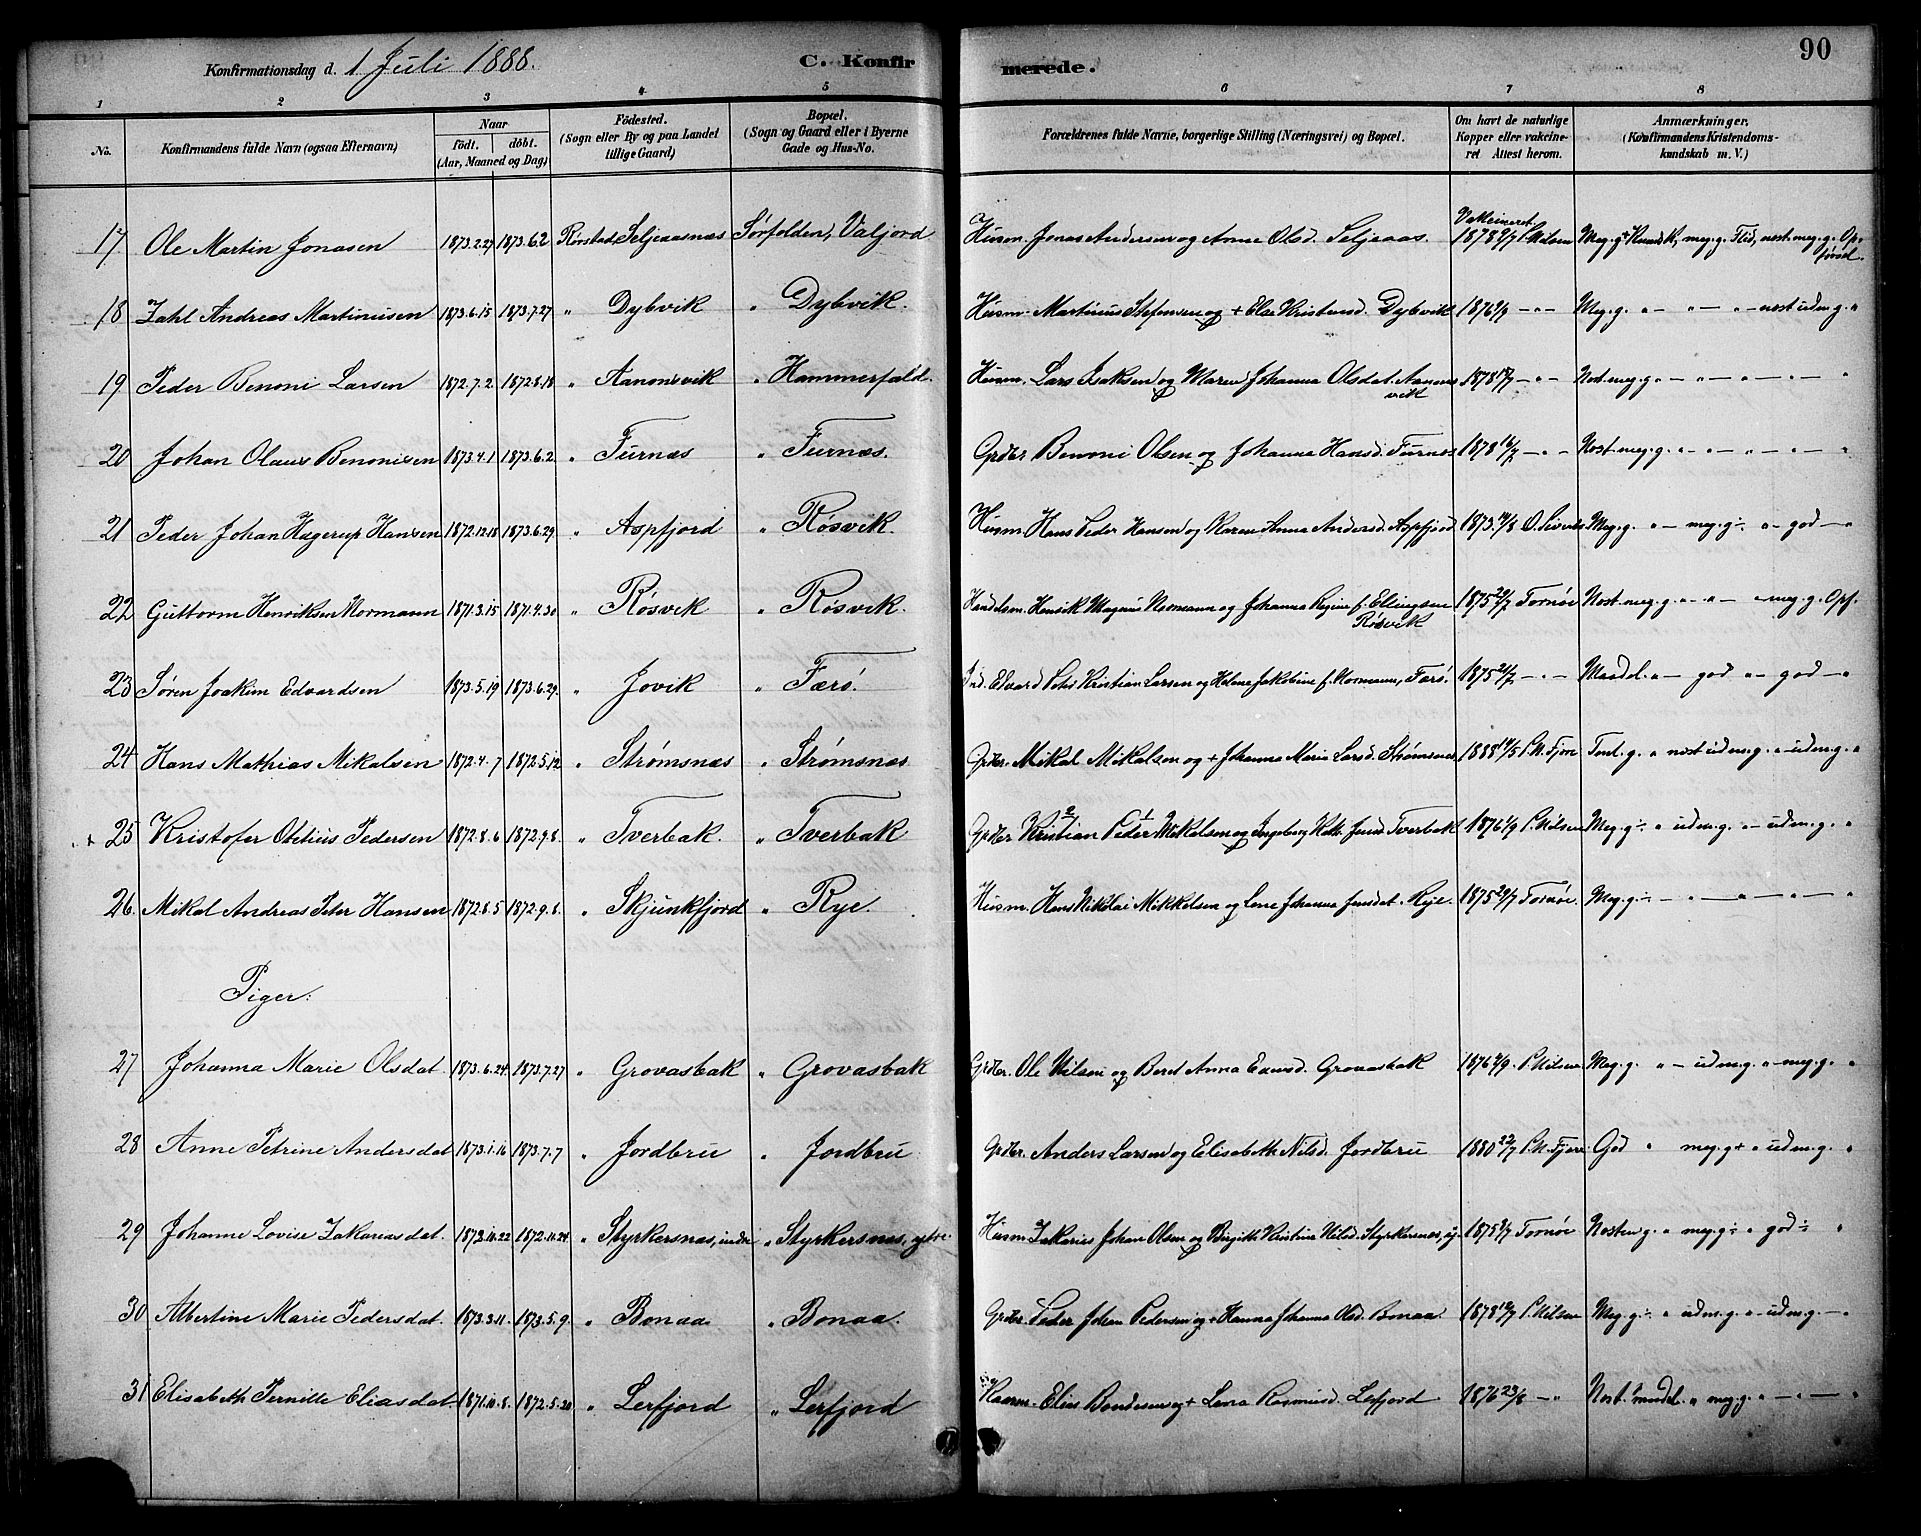 90
Konfirmationsdag d. 1 Juli 1888. C. Konfirmerede.
1 2 3 4 5 6 7 8
No.
Konfirmandens fulde Navn (ogsaa Efternavn)
Naar
født. døbt.
(Aar, Maaned og Dag)
Fødested.
(Sogn eller By og paa Landet
tillige Gaard)
Bopæl.
(Sogn og Gaard eller i Byerne
Gade og Hus-No.
Forældrenes fulde Navne, borgerlige Stilling (Næringsvei) og Bopæl.
Om havt de naturlige
Kopper eller vakcine-
ret Attest herom.
Anmærkninger,
(Konfirmandens Kristendoms-
kundskab m. V.)
17. Ole Martin Jonasen 1873.2.27 1873.6.2 Rørstad, Seljeaasnæs Sørfolden, Valjord Husm. Jonas Andersen og Anne Olsd. Seljeaas. Vakcineret 1878 9/7 P. Nilsen Meg. g + Kundsk, meg. g. Flid, nost. meg. g. Opførsel.
18 Zahl Andreas Martinusen 1873.6.15 1873.7.27 " Dybvik " Dybvik. Husm. Martinus Stefensen og + Else Kristensd. Dybvik 1876 1/9 — " — Meg. g. " — " — " — nost udm. g. "
19 Peder Benoni Larsen 1872.7.2. 1872.8.18 " Aanonsvik " Hammerfald. Husm. Lars Isaksen og Maren Johanna Olsdat. Aanonsvik 1878 — " — Nost. meg. g " — " — " — " — "
20 Johan Olaus Benonisen 1873.4.1 1873.6.2. " Furnæs " Furnæs. Grdbr. Benoni Olsen og Johanna Hansd. Furnæs 1878 16/7 — " — Nost. meg. g. " — " — " — " — "
21 Peder Johan Hagerup Hansen 1872.12.18 1873.6.29. " Aspfjord " Røsvik. Husm. Hans Peder Hansen og Karen Anna Andersd. Aspfjord 1873 Meg. g. " — meg. g ÷ " — god — "
22 Guttorm Henriksen Normann 1871.3.15 1871.4.30 " Røsvik " Røsvik. Handelsm. Henrik Magnus Normann og Johanna Regine f. Ellingsen Røsvik 1875 29/7 Tornøe Nost. meg. g. " — " — " meg. g. Opf.
23 Søren Joakim Edvardsen 1873.5.19 1873.6.29. " Jovik " Færø. Ind. Edvard Kristian Larsen og Helene Jakobine f. Normann, Færø. 1875 21/7 — " — Maadel. " — god " — god — "
24 Hans Mathias Mikalsen 1872.4.7 1872.5.12 " Strømsnæs " Strømsnæs Grdbr. Mikal Mikalsen og + Johanna Maria Larsd. Strømsnes 1888 14/5 P. N. Fjore Teml. g. " nost udm. g. " — udm. g. "
25 Kristofer Oletius Pedersen 1872.8.6 1872.9.8. " Tverbak. " Tverbak Grdbr Kristian Peder Mikalsen og Ingeborg Kath. Jensd. Tverbak 1876 1/9 P. Nilsen Meg. g ÷ " udm. g. " — udm. g. "
26. Mikal Andreas Peter Hansen 1872.8.5 1872.9.8. " Skjunkfjord " Rye. Husm. Hans Nikolai Mikkelsen og Lene Johanna Jensdat. Reje. 1875 29/7 Tornøe. Meg. g ÷ — " — " — " — "
Piger:
27 Johanna Marie Olsdat. 1873.6.24. 1873.7.27 " Grovasbak " Grovasbak Grdbr. Ole Nilsen og Beret Anna Enersd. Grovasbak 1876 2/9. P. Nilsen Meg. g. " — udm. g. " — meg. g. "
28 Anne Petrine Andersdat 1873.1.16 1873.7.7 " Jordbru " Jordbru Grdbr. Anders Larsen og Elisabeth Nilsd. Jordbru 1880 22/7 P. N. Fjore God " meg. g + " udm. g. "
29 Johanne Lovise Zakariasdat. 1872.10.22 1872.11.24 " Styrkersnæs, indre " Styrkersnæs, ytre Husm. Zakarias Johan Olsen og Birgith Kristine Nilsd. Styrkersnæs, y. 1875 Tornøe Nosten g. " meg. g ÷ " god ÷ "
30 Albertine Marie Pedersdat. 1873.3.11. 1873.5.9. " Bonaa " Bonaa. Grdbr. Peder Johan Pedersen og + Hanna Johanna Olsd. Bonaa 1878 12/7 P. Nilsen Meg. g ÷ " udm. g. " — udm. g. — "
31 Elisabeth Pernille Eliasdat. 1871.10.8. 1872.5.20 " Lerfjord " Lerfjord Elias Bondesen og + Lena Rasmusd. Lerfjord 1876 23/6 — " Nost. maadel. " meg. g. " — " — "